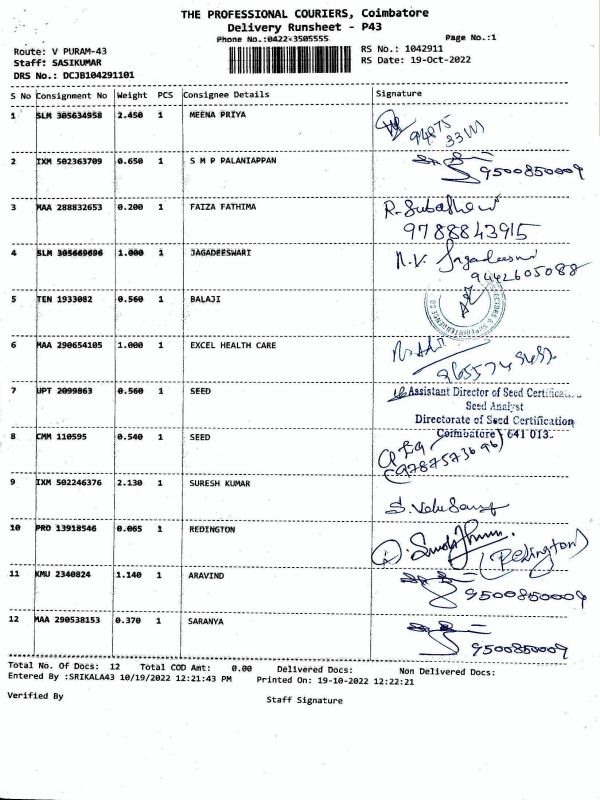 THE PROFESSIONAL COURIERS, Coimbatore
Delivery Runsheet - P43
Phone No.:0422-3505555
Page No.:1
Route: V PURAM-43
RS No.: 1042911
Staff: SASIKUMAR
RS Date: 19-Oct-2022
DRS No.: DCJB104291101
S No Consignment No Weight PCS Consignee Details Signature
1 SLM 305634958 2.450 1 MEENA PRIYA
94875
2 IXM 502363709 0.650 1 S M P PALANIAPPAN
9500850009
3 MAA 288832653 0.200 1 FAIZA FATHIMA R. Subashewi
9788843915
4 SLM 305669696 1.000 1 JAGADEESWARI N.V. Jagadeeswi
9442605088
5 TEN 1933082 0.560 1 BALAJI
6 MAA 290654105 1.000 1 EXCEL HEALTH CARE
7 UPT 2099863 0.560 1 SEED Assistant Director of Seed Certifica
Seed Analyst
Directorate of Seed Certification
8 CMM 110595 0.540 1 SEED Coimbatore 641 013.
9787573696
9 IXM 502246376 2.130 1 SURESH KUMAR
10 PRO 13918546 0.065 1 REDINGTON
(Redington)
11 KMU 2340824 1.140 1 ARAVIND
9500850009
12 MAA 290538153 0.370 1 SARANYA
9500850009
Total No. Of Docs: 12 Total COD Amt: 0.00 Delivered Docs: Non Delivered Docs:
Entered By :SRIKALA43 10/19/2022 12:21:43 PM Printed On: 19-10-2022 12:22:21
Verified By Staff Signature